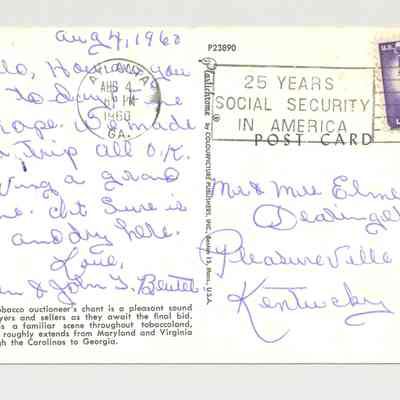 Aug 4, 1960
lo, How are you
to day.
hope. We made
Trip all O.K.
ving a grand
me. it Sure is
and dry here.
Love,
& John T. Beutel
obacco auctioneer's chant is a pleasant sound
yers and sellers as they await the final bid.
is a familiar scene throughout tobaccoland,
roughly extends from Maryland and Virginia
gh the Carolinas to Georgia.
ATLANTA
AUG 4
PM
1960
GA.
P23890
Plastichrome ® by COLOURPICTURE PUBLISHERS, INC., Boston 15, Mass., U.S.A.
25 YEARS
SOCIAL SECURITY
IN AMERICA
POST CARD
U.S.
Mr & Mrs Elme
Dearinge
Pleasureville
Kentucky